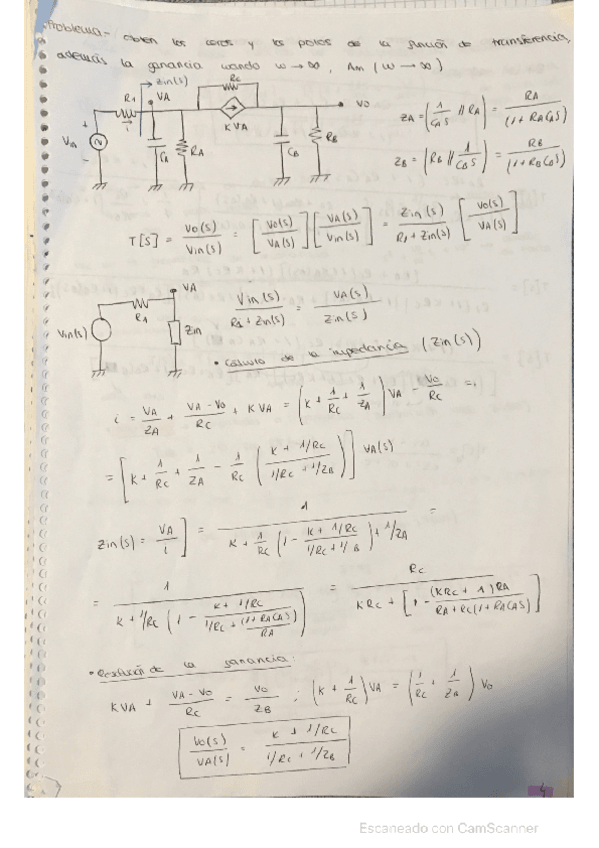 Problema.- Obten los ceros y los polos de la función de transferencia,
además la ganancia cuando ω→∞, Am (ω→∞)
Zin(s)
R1 VA RC VO
i
Vin CA RA KVA CB RB
ZA = (1/CAS // RA) = RA/(1+RACAS)
ZB = (RB // 1/CBS) = RB/(1+RBCBS)
T[S] = VO(s)/Vin(s) = [VO(s)/VA(s)] [VA(s)/Vin(s)] = Zin(s)/(R1+Zin(s)) [VO(s)/VA(s)]
VA
R1
Vin(s) Zin
Vin(s)/(R1+Zin(s)) = VA(s)/Zin(s)
• Cálculo de la impedancia (Zin(s))
i = VA/ZA + (VA-VO)/RC + KVA = (K + 1/RC + 1/ZA) VA - VO/RC =
= [K + 1/RC + 1/ZA - 1/RC ((K + 1/RC)/(1/RC + 1/ZB))] VA(s)
Zin(s) = VA/i ] = 1/(K + 1/RC (1 - (K + 1/RC)/(1/RC + 1/B) + 1/ZA) =
= 1/(K + 1/RC (1 - (K + 1/RC)/(1/RC + (1+RACAS)/RA)) = RC/(KRC + [1 - (KRC + 1)RA/(RA+RC(1+RACAS)])
• Resolución de la ganancia:
KVA + (VA-VO)/RC = VO/ZB ; (K + 1/RC) VA = (1/RC + 1/ZA) VO
VO(s)/VA(s) = (K + 1/RC)/(1/RC + 1/ZB)
4
Escaneado con CamScanner